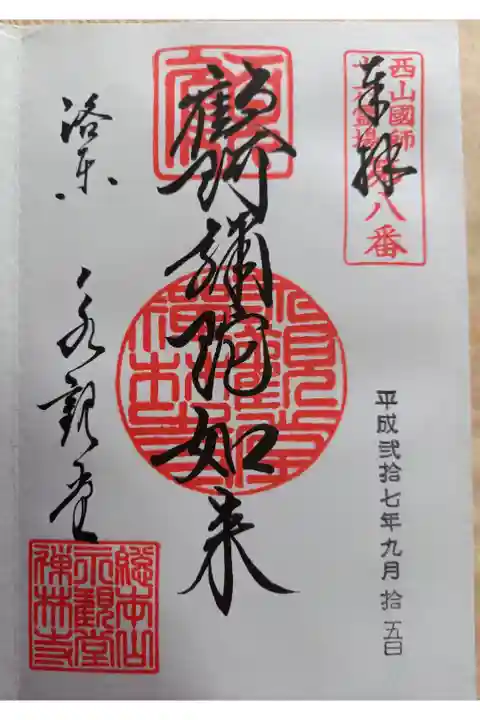 西山國師
十六霊場
第八番
奉拝
平成弐拾七年九月拾五日
阿彌陀如来
洛東 永観堂
總本山
永觀堂
禅林寺